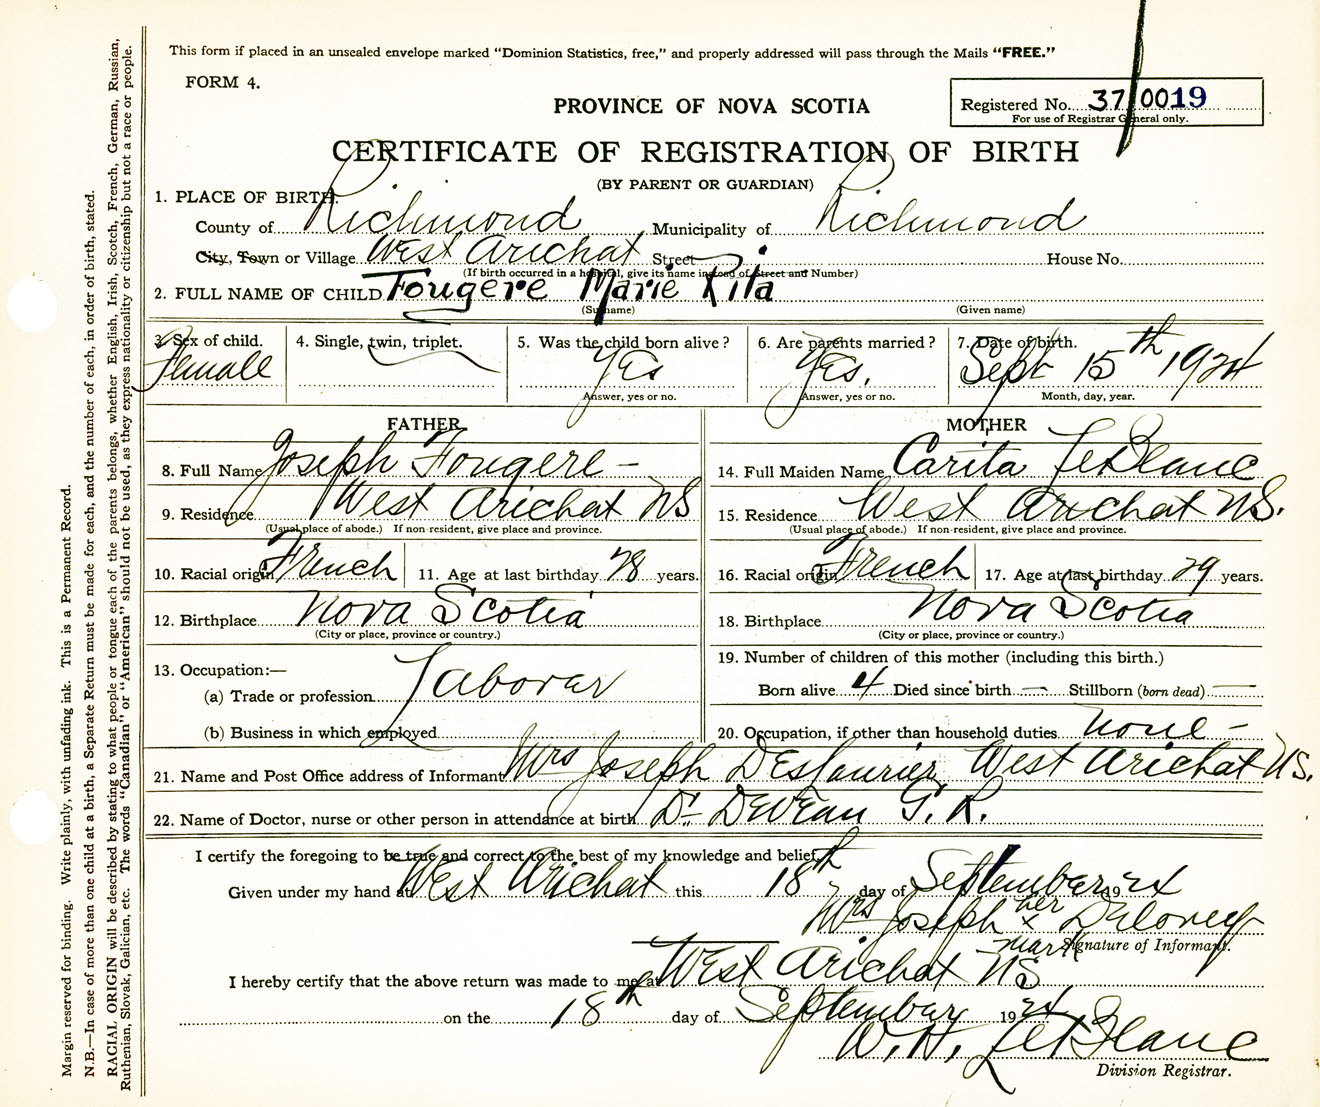 This form if placed in an unsealed envelope marked “Dominion Statistics, free,” and properly addressed will pass through the Mails “FREE.”
FORM 4.
Registered No. 37/0019
For use of Registrar General only.
PROVINCE OF NOVA SCOTIA
CERTIFICATE OF REGISTRATION OF BIRTH
(BY PARENT OR GUARDIAN)
1. PLACE OF BIRTH.
County of Richmond Municipality of Richmond
City, Town or Village West Arichat Street House No.
(If birth occurred in a hospital, give its name instead of Street and Number)
2. FULL NAME OF CHILD Fougere Marie Rita
(Surname) (Given name)
3. Sex of child. Female
4. Single, twin, triplet.
5. Was the child born alive? Yes
Answer, yes or no.
6. Are parents married? Yes.
Answer, yes or no.
7. Date of birth. Sept 15th 1924
Month, day, year.
FATHER
8. Full Name Joseph Fougere -
9. Residence West Arichat NS
(Usual place of abode.) If non-resident, give place and province.
10. Racial origin French 11. Age at last birthday 28 years.
12. Birthplace Nova Scotia
(City or place, province or country.)
13. Occupation:—
(a) Trade or profession Laborer
(b) Business in which employed
MOTHER
14. Full Maiden Name Carita LeBlanc
15. Residence West Arichat NS.
(Usual place of abode.) If non-resident, give place and province.
16. Racial origin French 17. Age at last birthday 29 years.
18. Birthplace Nova Scotia
(City or place, province or country.)
19. Number of children of this mother (including this birth.)
Born alive 4 Died since birth — Stillborn (born dead) —
20. Occupation, if other than household duties none -
21. Name and Post Office address of Informant Mrs Joseph Deslaurier West Arichat NS.
22. Name of Doctor, nurse or other person in attendance at birth Dr DeVeau G. R.
I certify the foregoing to be true and correct to the best of my knowledge and belief.
Given under my hand at West Arichat this 18th day of September 1924
Mrs Joseph her x mark
Signature of Informant.
I hereby certify that the above return was made to me at West Arichat NS
on the 18th day of September 1924
W. H. LeBlanc
Division Registrar.
Margin reserved for binding. Write plainly, with unfading ink. This is a Permanent Record.
N.B.—In case of more than one child at a birth, a Separate Return must be made for each, and the number of each, in order of birth, stated.
RACIAL ORIGIN will be described by stating to what people or tongue each of the parents belongs, whether English, Irish, Scotch, French, German, Russian,
Ruthenian, Slovak, Galician, etc. The words “Canadian” or “American” should not be used, as they express nationality or citizenship but not a race or people.